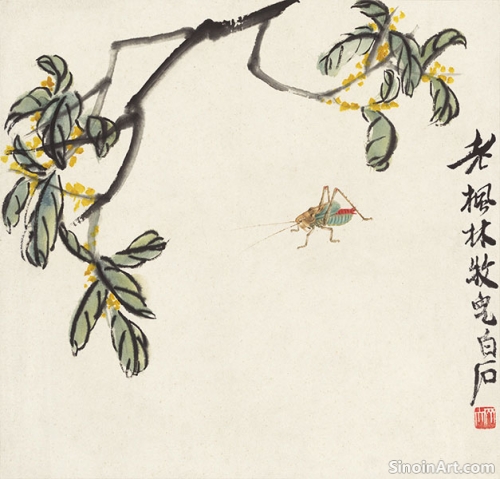 老楓林牧兒白石
SinoinArt.com